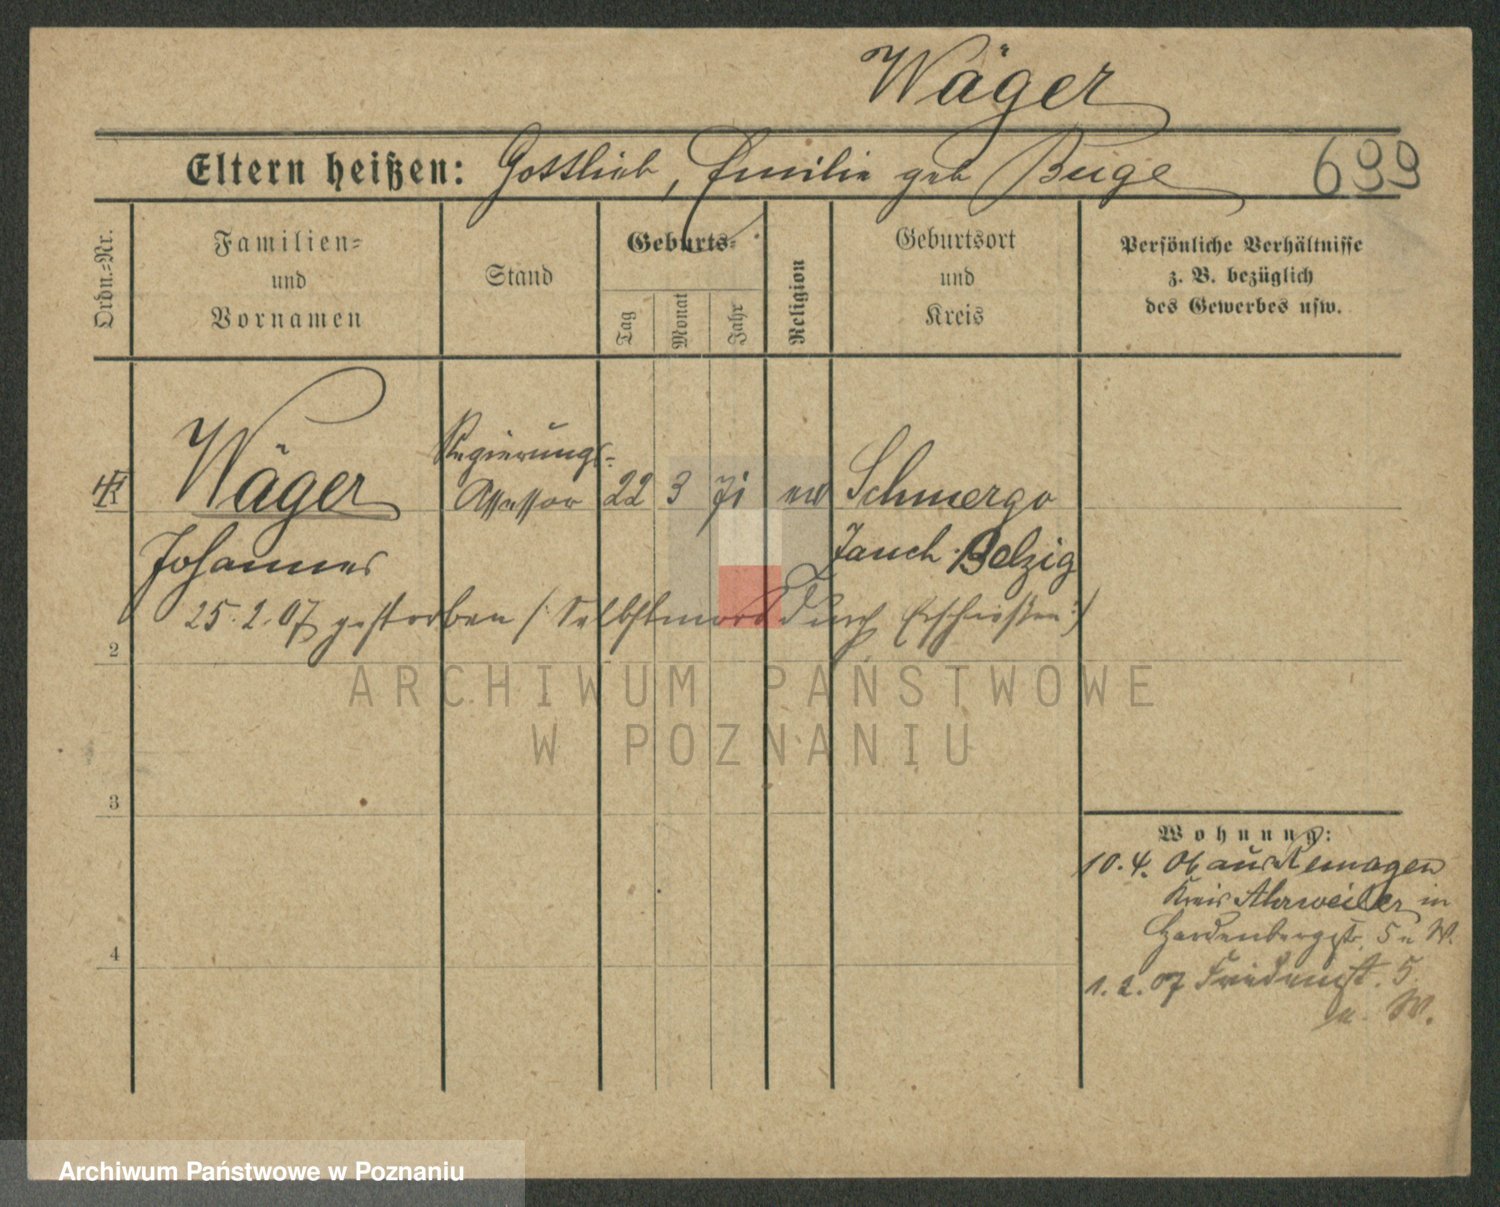 Wäger
Eltern heißen: Gottlieb, Emilie geb Buge 699
Ordn.=Nr.
Familien=
und
Vornamen
Stand
Geburts=
Tag
Monat
Jahr
Religion
Geburtsort
und
Kreis
Persönliche Verhältnisse
z. B. bezüglich
des Gewerbes usw.
Wäger
Regierungs=
Assessor
22 3 71 ev Schmergo
Johannes
Zauch. Belzig
25. 2. 07 gestorben /: Selbstmord durch Erschießen :/
2
3
4
Wohnung:
10. 4. 06 aus Remagen
Kreis Ahrweiler in
Hardenbergstr. 5 W.
1. 2. 07 5.
W.
ARCHIWUM PAŃSTWOWE
W POZNANIU
Archiwum Państwowe w Poznaniu